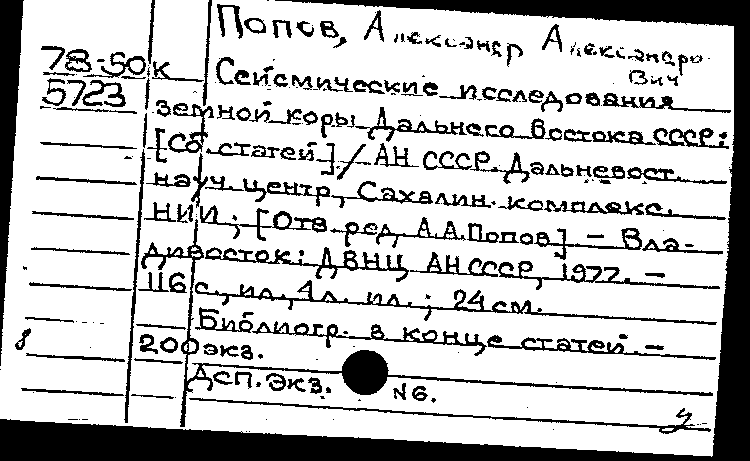 Попов, Александр Александро-
вич
78-50к Сейсмические исследования
5723 земной коры Дальнего Востока СССР:
[Сб. статей] / АН СССР. Дальневост.
науч. центр, Сахалин. комплекс.
НИИ; [Отв. ред. А.А. Попов] - Вла-
дивосток: ДВНЦ АН СССР, 1977. -
116 с., ил., 4 л. ил.; 24 см.
Библиогр. в конце статей. -
8 200 экз.
Дсп. Экз. N6.